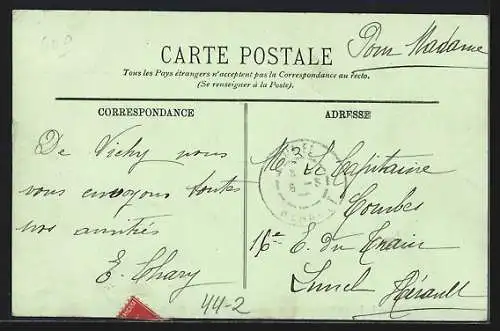 Pour Madame
CARTE POSTALE
Tous les Pays étrangers n'acceptent pas la Correspondance au recto.
(Se renseigner à la Poste).
CORRESPONDANCE
De Vichy nous
vous envoyons toutes
nos amitiés
E. Chary
44-2
ADRESSE
Mr Le Capitaine
Combes
16e E. du Train
Lunel Hérault